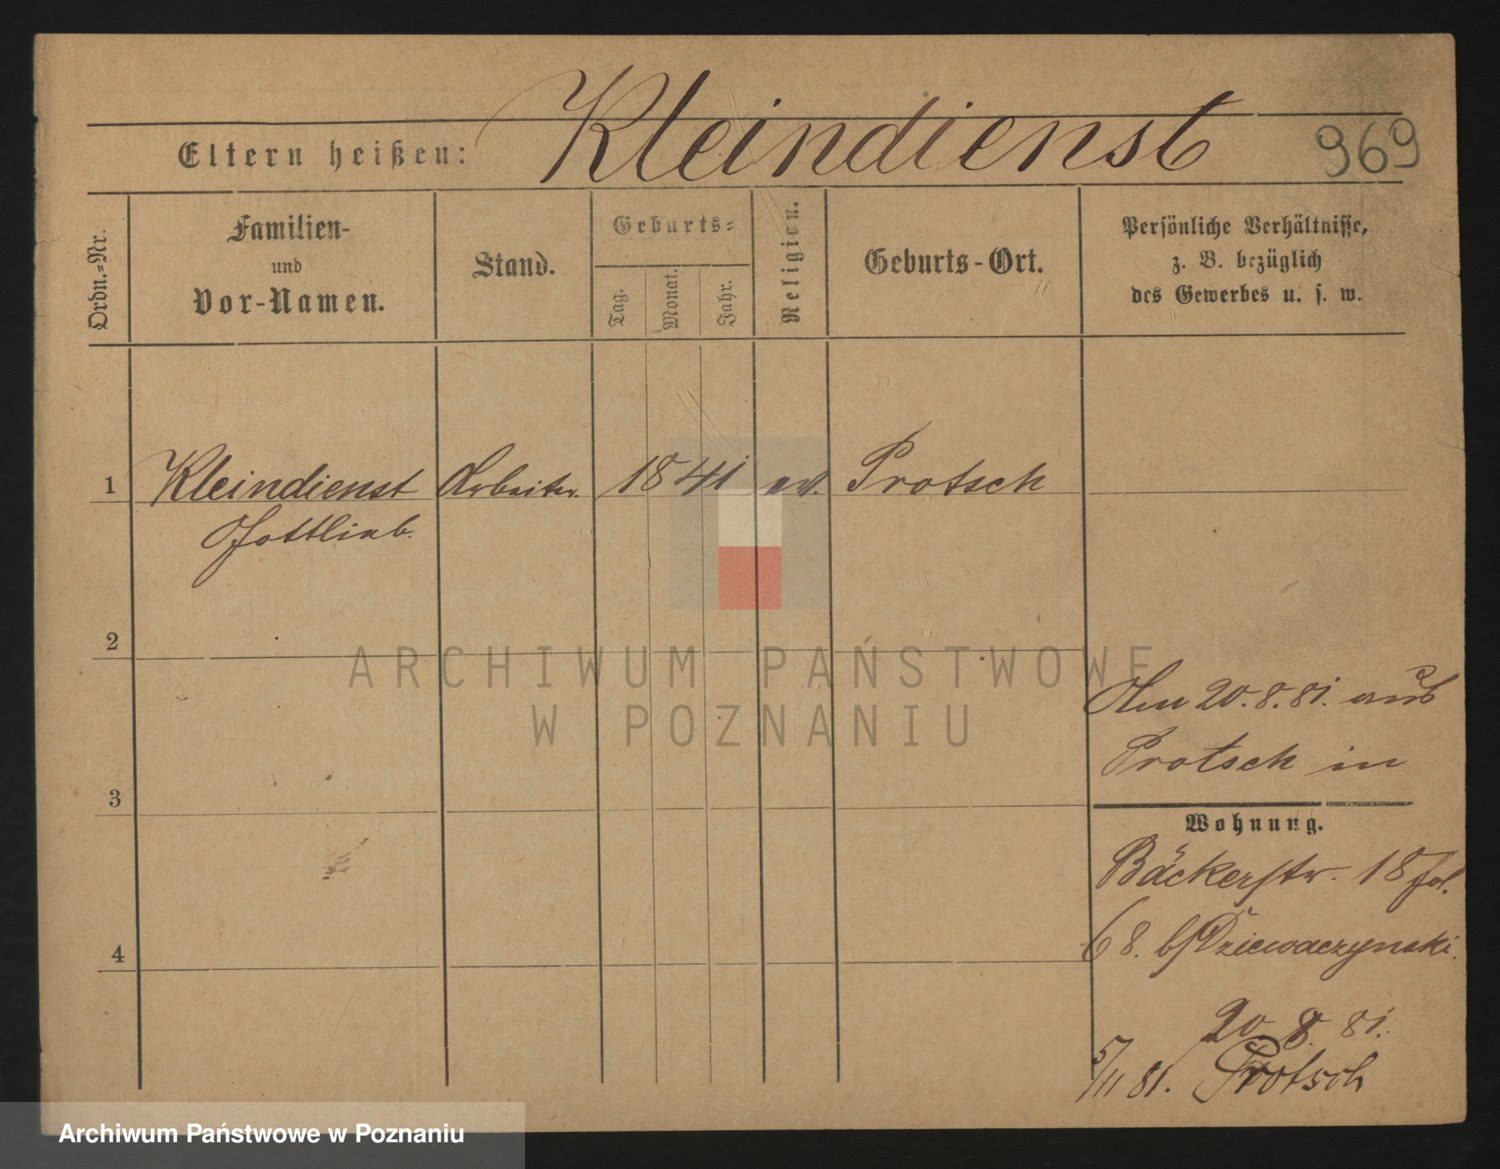 Kleindienst
969
Eltern heißen:
Ordn.-Nr.
Familien-
und
Vor-Namen.
Stand.
Geburts-
Tag.
Monat.
Jahr.
Religion.
Geburts-Ort.
Persönliche Verhältnisse,
z. B. bezüglich
des Gewerbes u. s. w.
1 Kleindienst Arbeiter 1841 ev. Protsch
Gottlieb.
2
3
4
Am 20.8.81. aus
Protsch in
Wohnung.
Bäckerstr. 18 fol.
68. b/Dziewaczynski.
20 8 81.
5/11 81. Protsch
ARCHIWUM PAŃSTWOWE
W POZNANIU
Archiwum Państwowe w Poznaniu